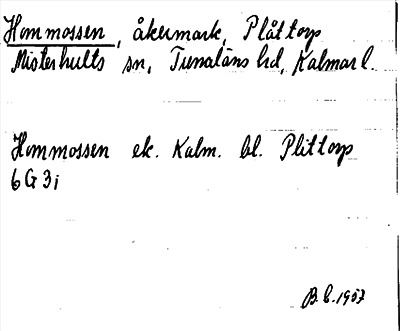 Hommossen, åkermark, Plåttorp
Misterhults sn, Tunaläns hd, Kalmar l.
Hommossen ek. Kalm. bl. Plittorp
6G3i
B.E. 1957